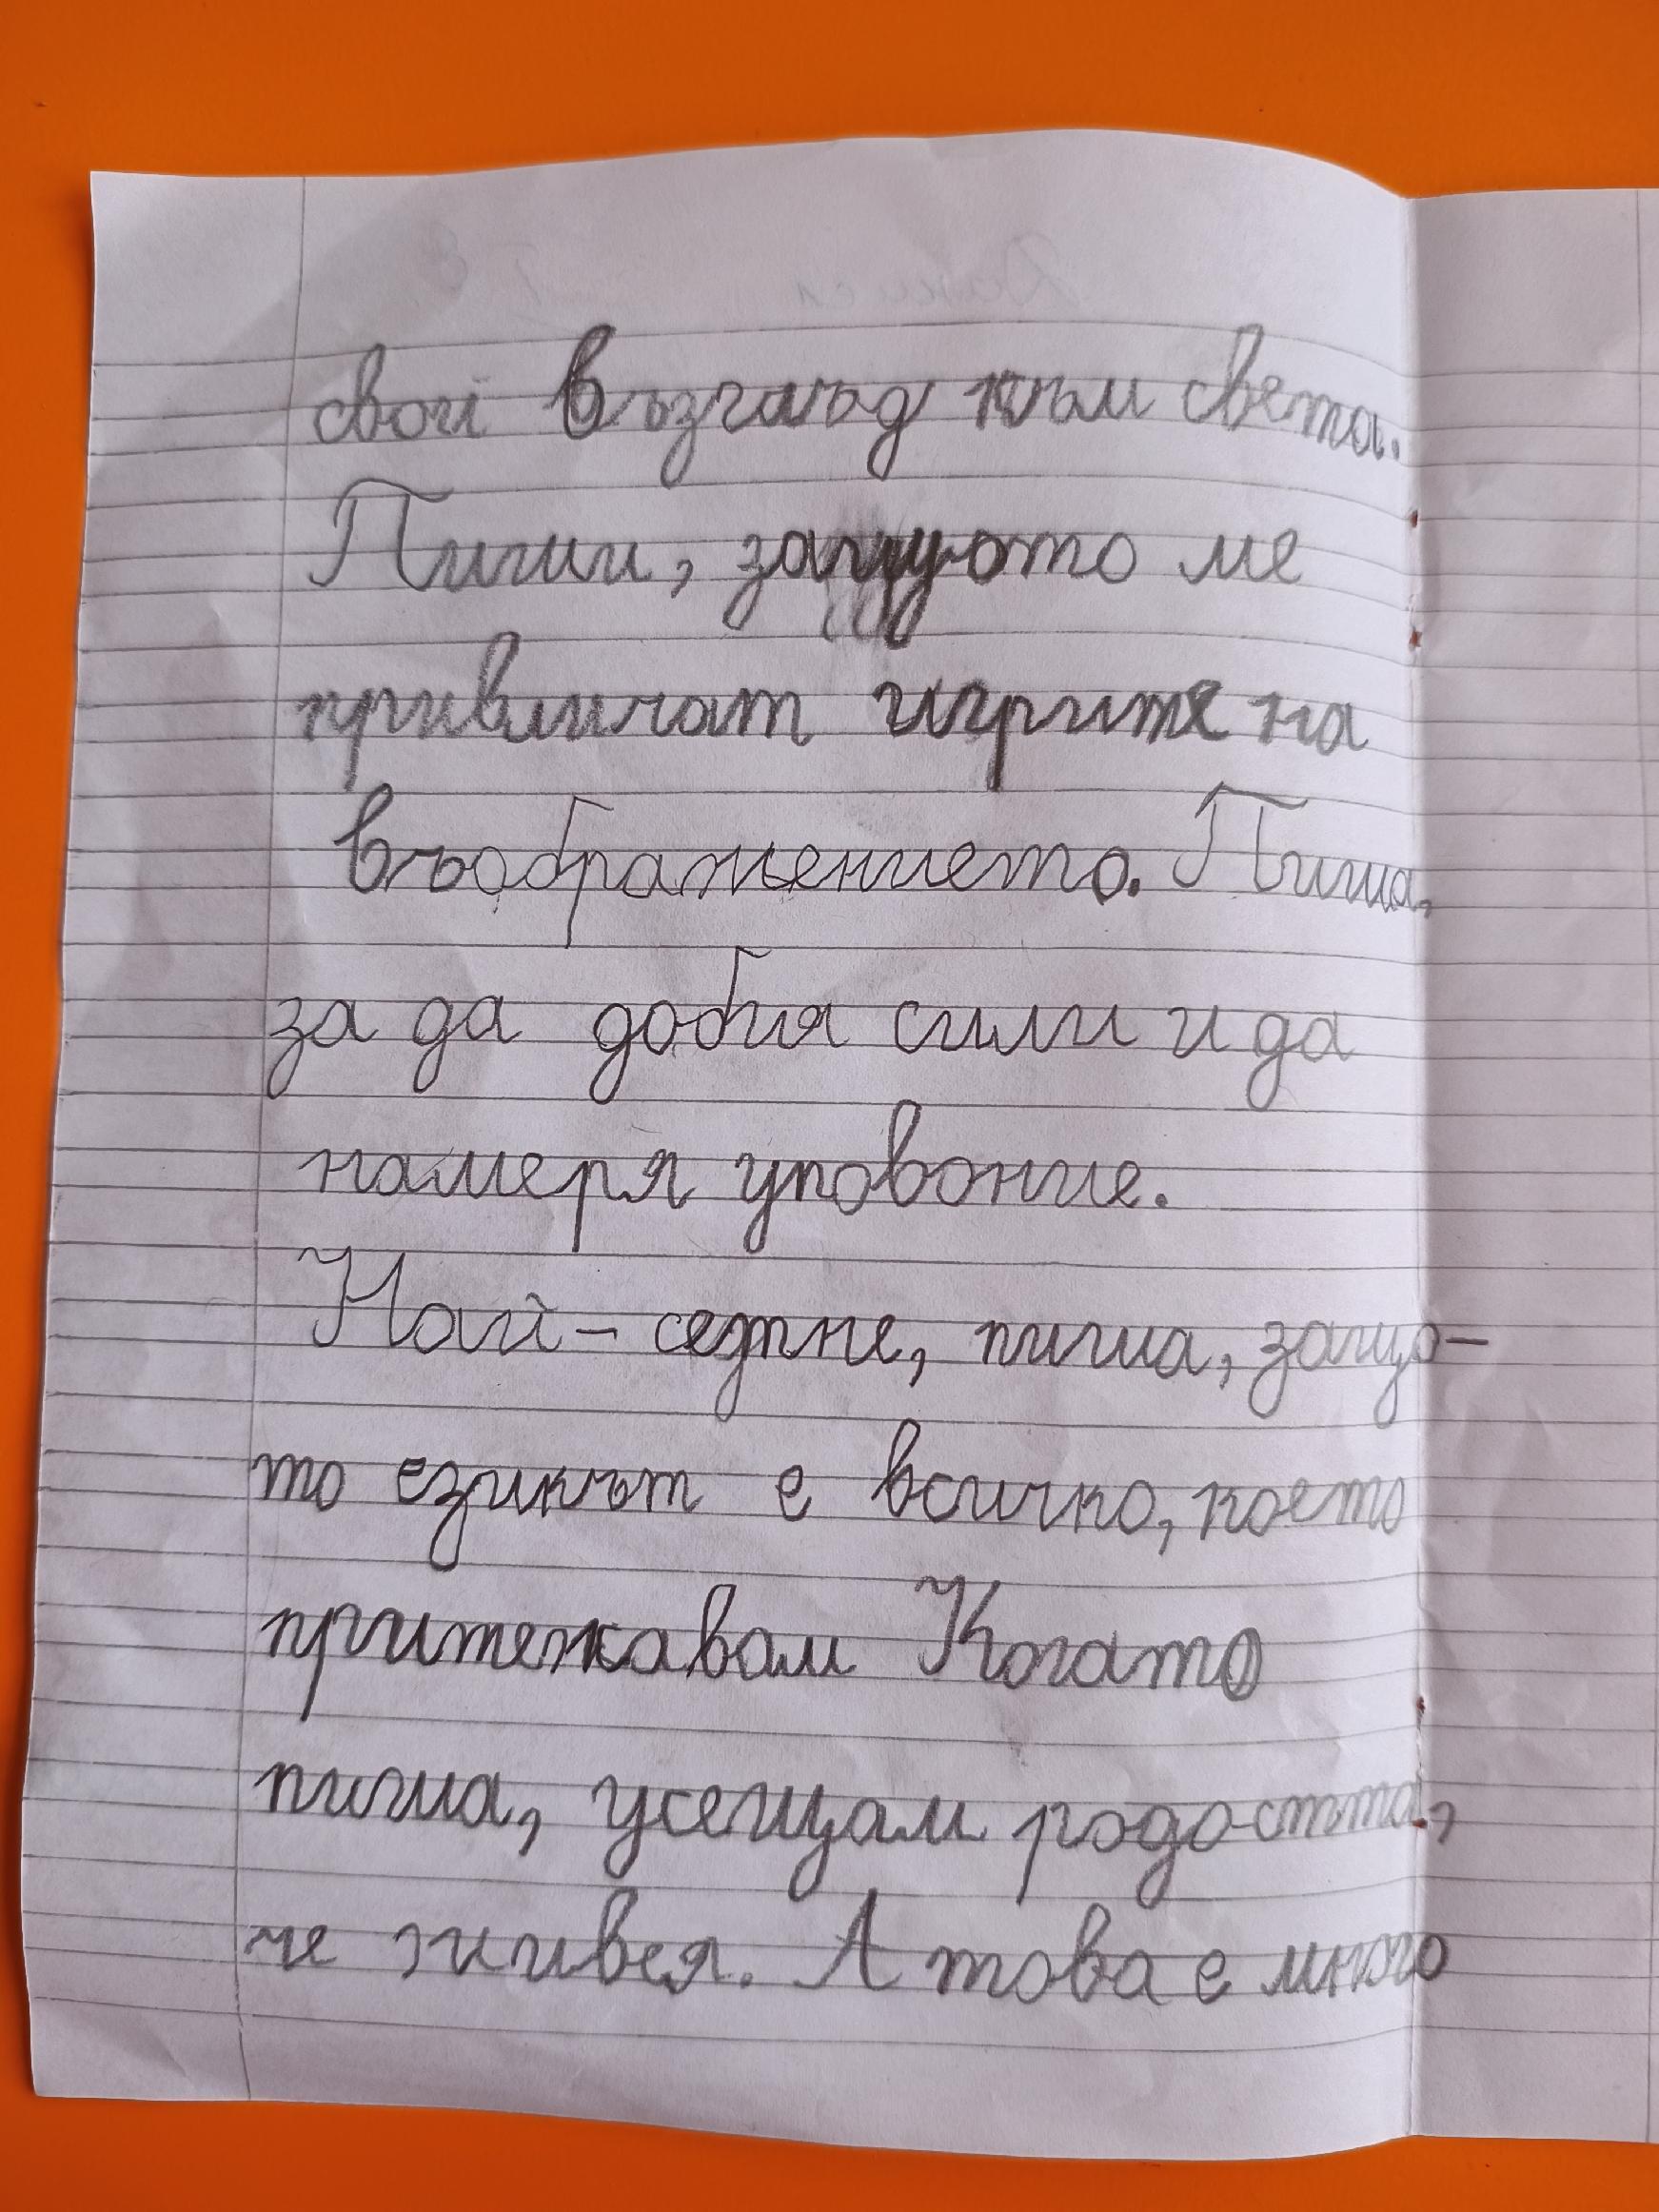 свой възглъд към света.
Пиши, защото ме
привличат игрите на
въображението. Пиша,
за да добия сили и да
намеря упование.
Най-сетне, пиша, защо-
то езикът е всичко, което
притежавам Когато
пиша, усещам радостта,
че живея. А това е много